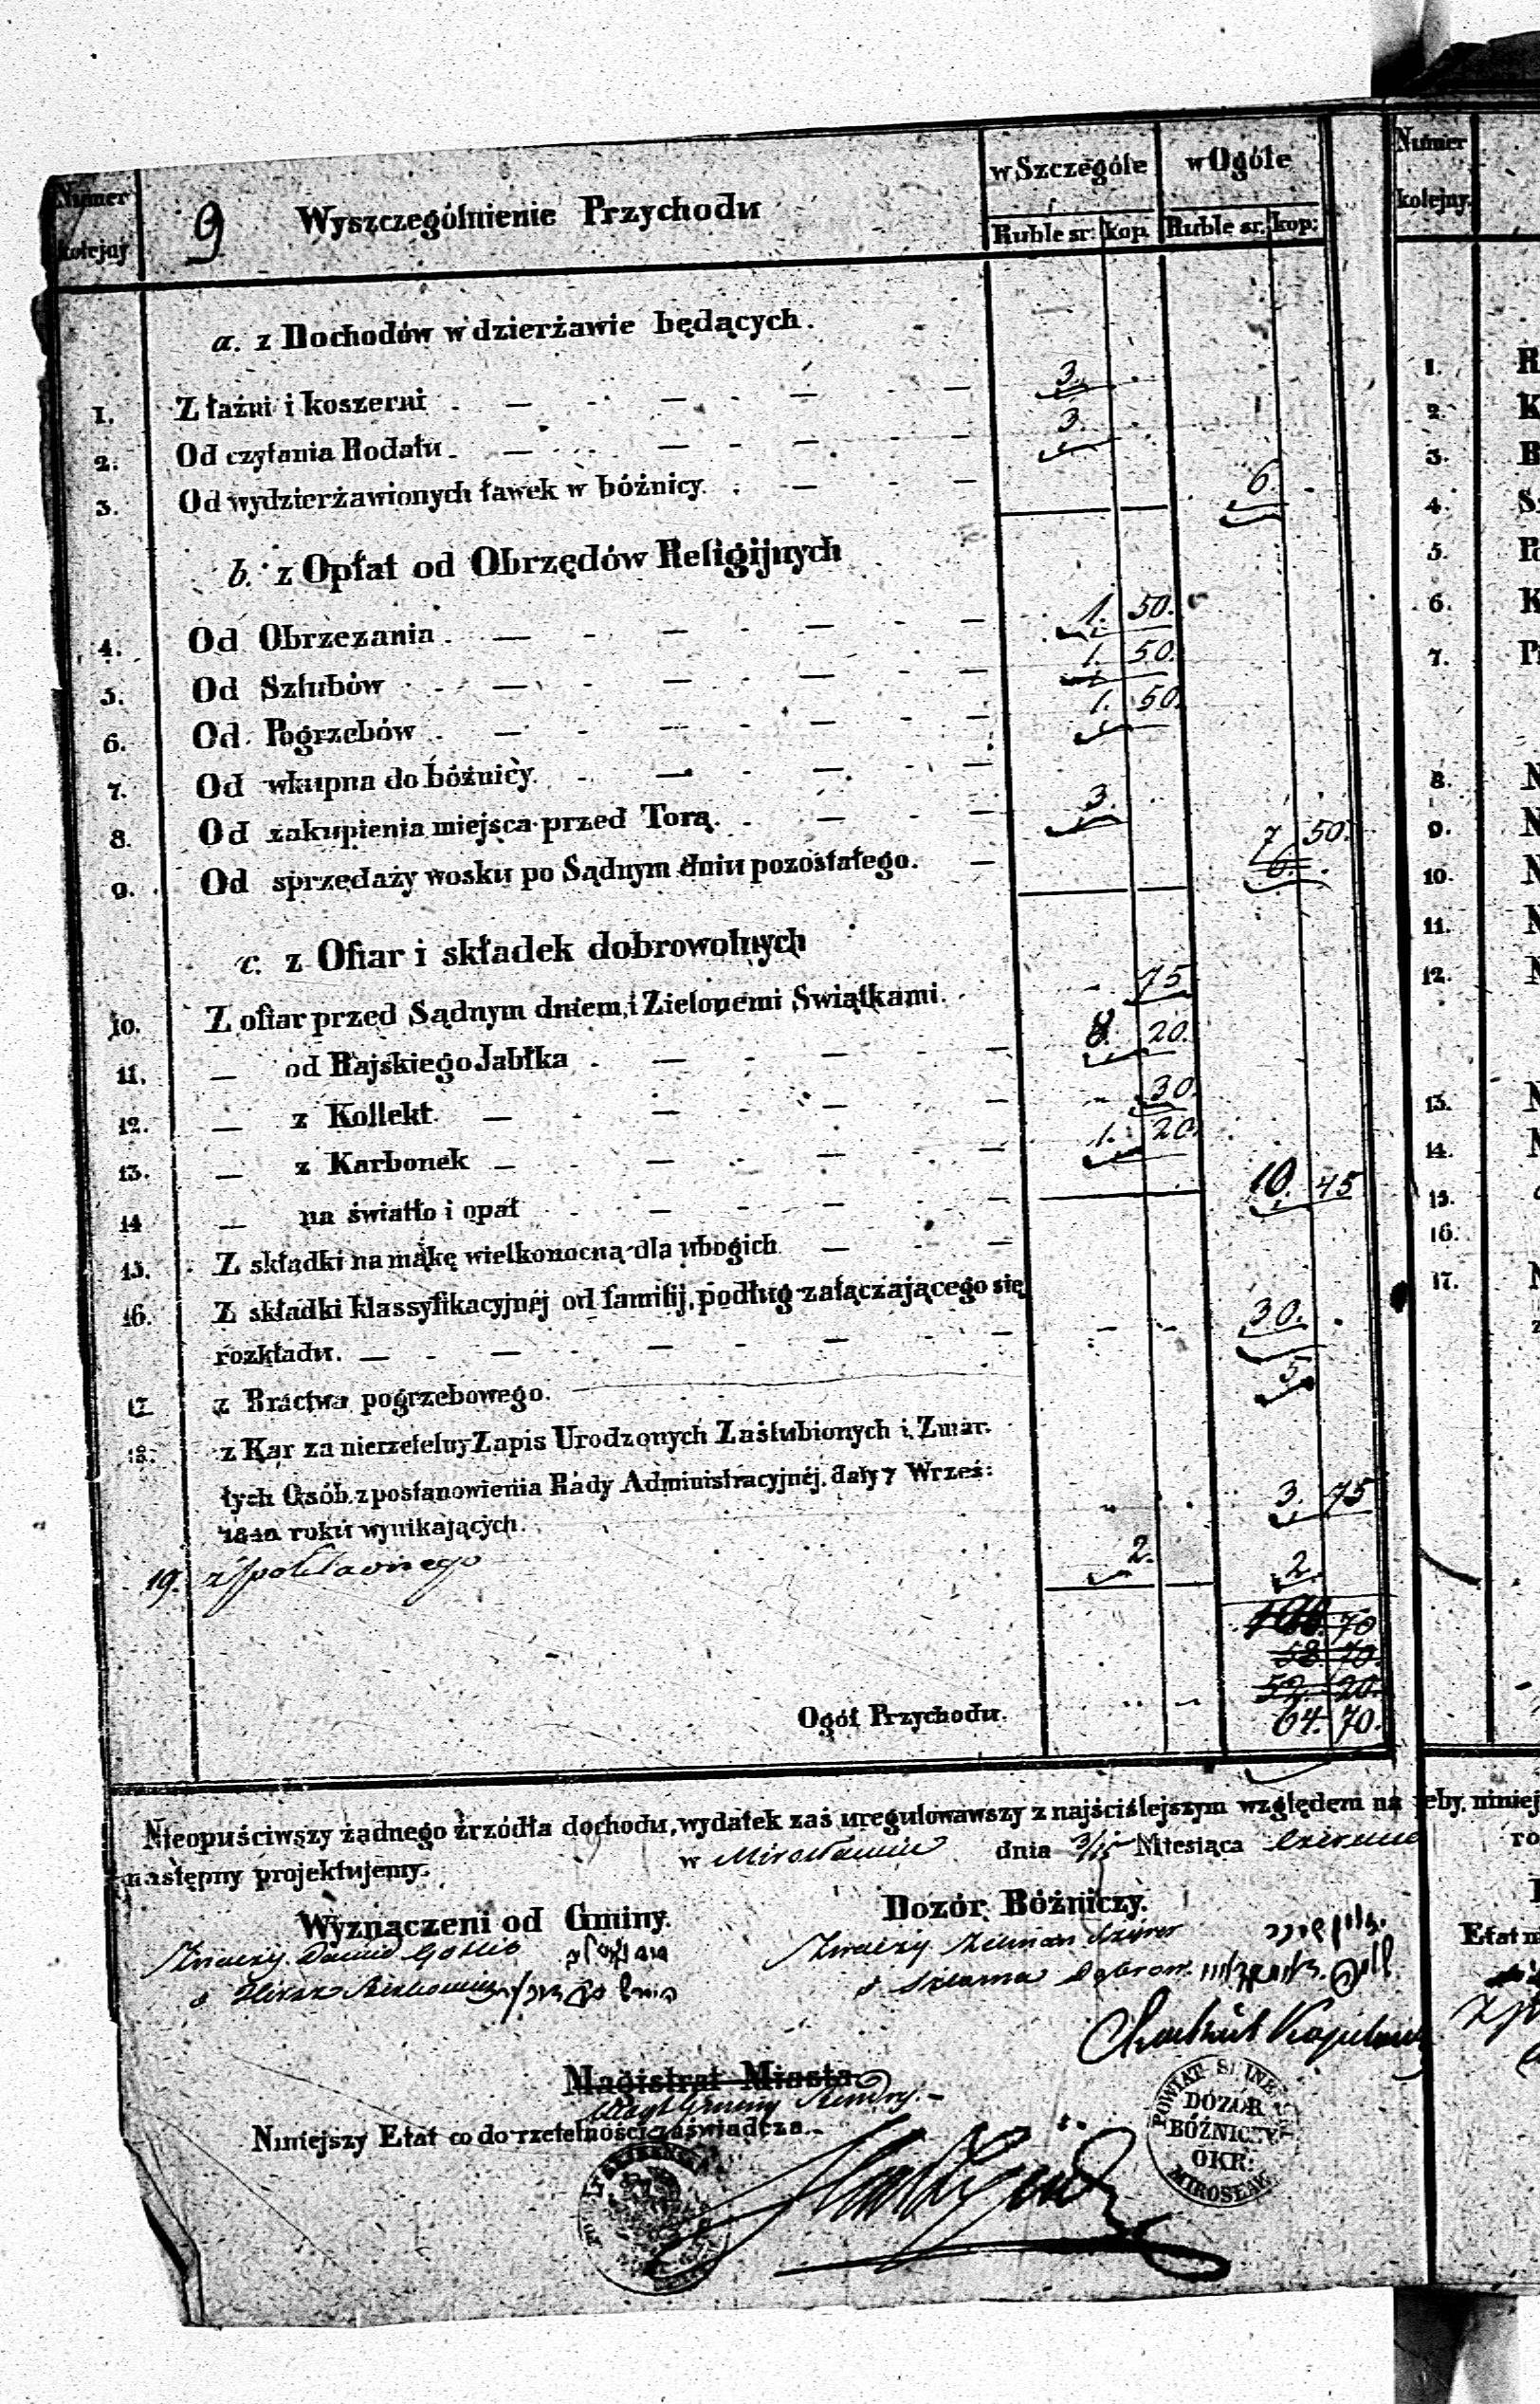 Numer kolejny
9 Wyszczególnienie Przychodu
w Szczególe w Ogóle
Ruble sr: kop. Ruble sr. kop:
a. z Dochodów w dzierżawie będących.
1. Z łaźni i koszerni . 3.
2. Od czytania Rodału. 3.
3. Od wydzierżawionych ławek w bóżnicy. 6.
b. z Opłat od Obrzędów Religijnych
4. Od Obrzezania. 1. 50.
5. Od Szlubów 1. 50.
6. Od Pogrzebów . 1. 50.
7. Od wkupna do bóźnicy.
8. Od zakupienia miejsca przed Torą. 3. 7. 50.
9. Od sprzedaży wosku po Sądnym dniu pozostałego. 6.
c. z Ofiar i składek dobrowolnych
10. Z ofiar przed Sądnym dniem i Zielonemi Swiątkami. 75
11. — od Rajskiego Jabłka . 8. 20.
12. — z Kollekt. 30.
13. — z Karbonek 1. 20.
14 — na światło i opał 10. 45
15. Z składki na mąkę wielkonocną dla ubogich
16. Z składki klassyfikacyjnéj od familij, podług załączającego się
rozkładu. 30.
17 z Bractwa pogrzebowego. 5.
18. z Kar za nierzetelny Zapis Urodzonych Zaślubionych i Zmar.
łych Osób z postanowienia Rády Administracyjnéj. daty 7 Wrześ:
1840 roku wynikających. 3. 75
19. z pokładnego 2. 2.
70
58 70.
52. 20.
Ogół Przychodu. 64. 70.
Nieopuściwszy żadnego źrzódła dochodu, wydatek zaś uregulowawszy z najściślejszym względem na
następny projektujemy. w Mirosławiu dnia 3/15 Miesiąca Czerwca
Wyznaczeni od Gminy. Dozór Bóżniczy.
Magistrat Miasta.
Niniejszy Etat co do rzetelności zaświadcza.
POWIAT
DOZÓR
BÓŹNICZY
OKR:
MIROSŁAW.
Numer kolejny.
1. R
2. K
3. B
4. S
5.
6. K
7. P
8. N
9. N
10. N
11. N
12. N
13. N
14.
15.
16.
17.
żeby niniej
ro
Etat n